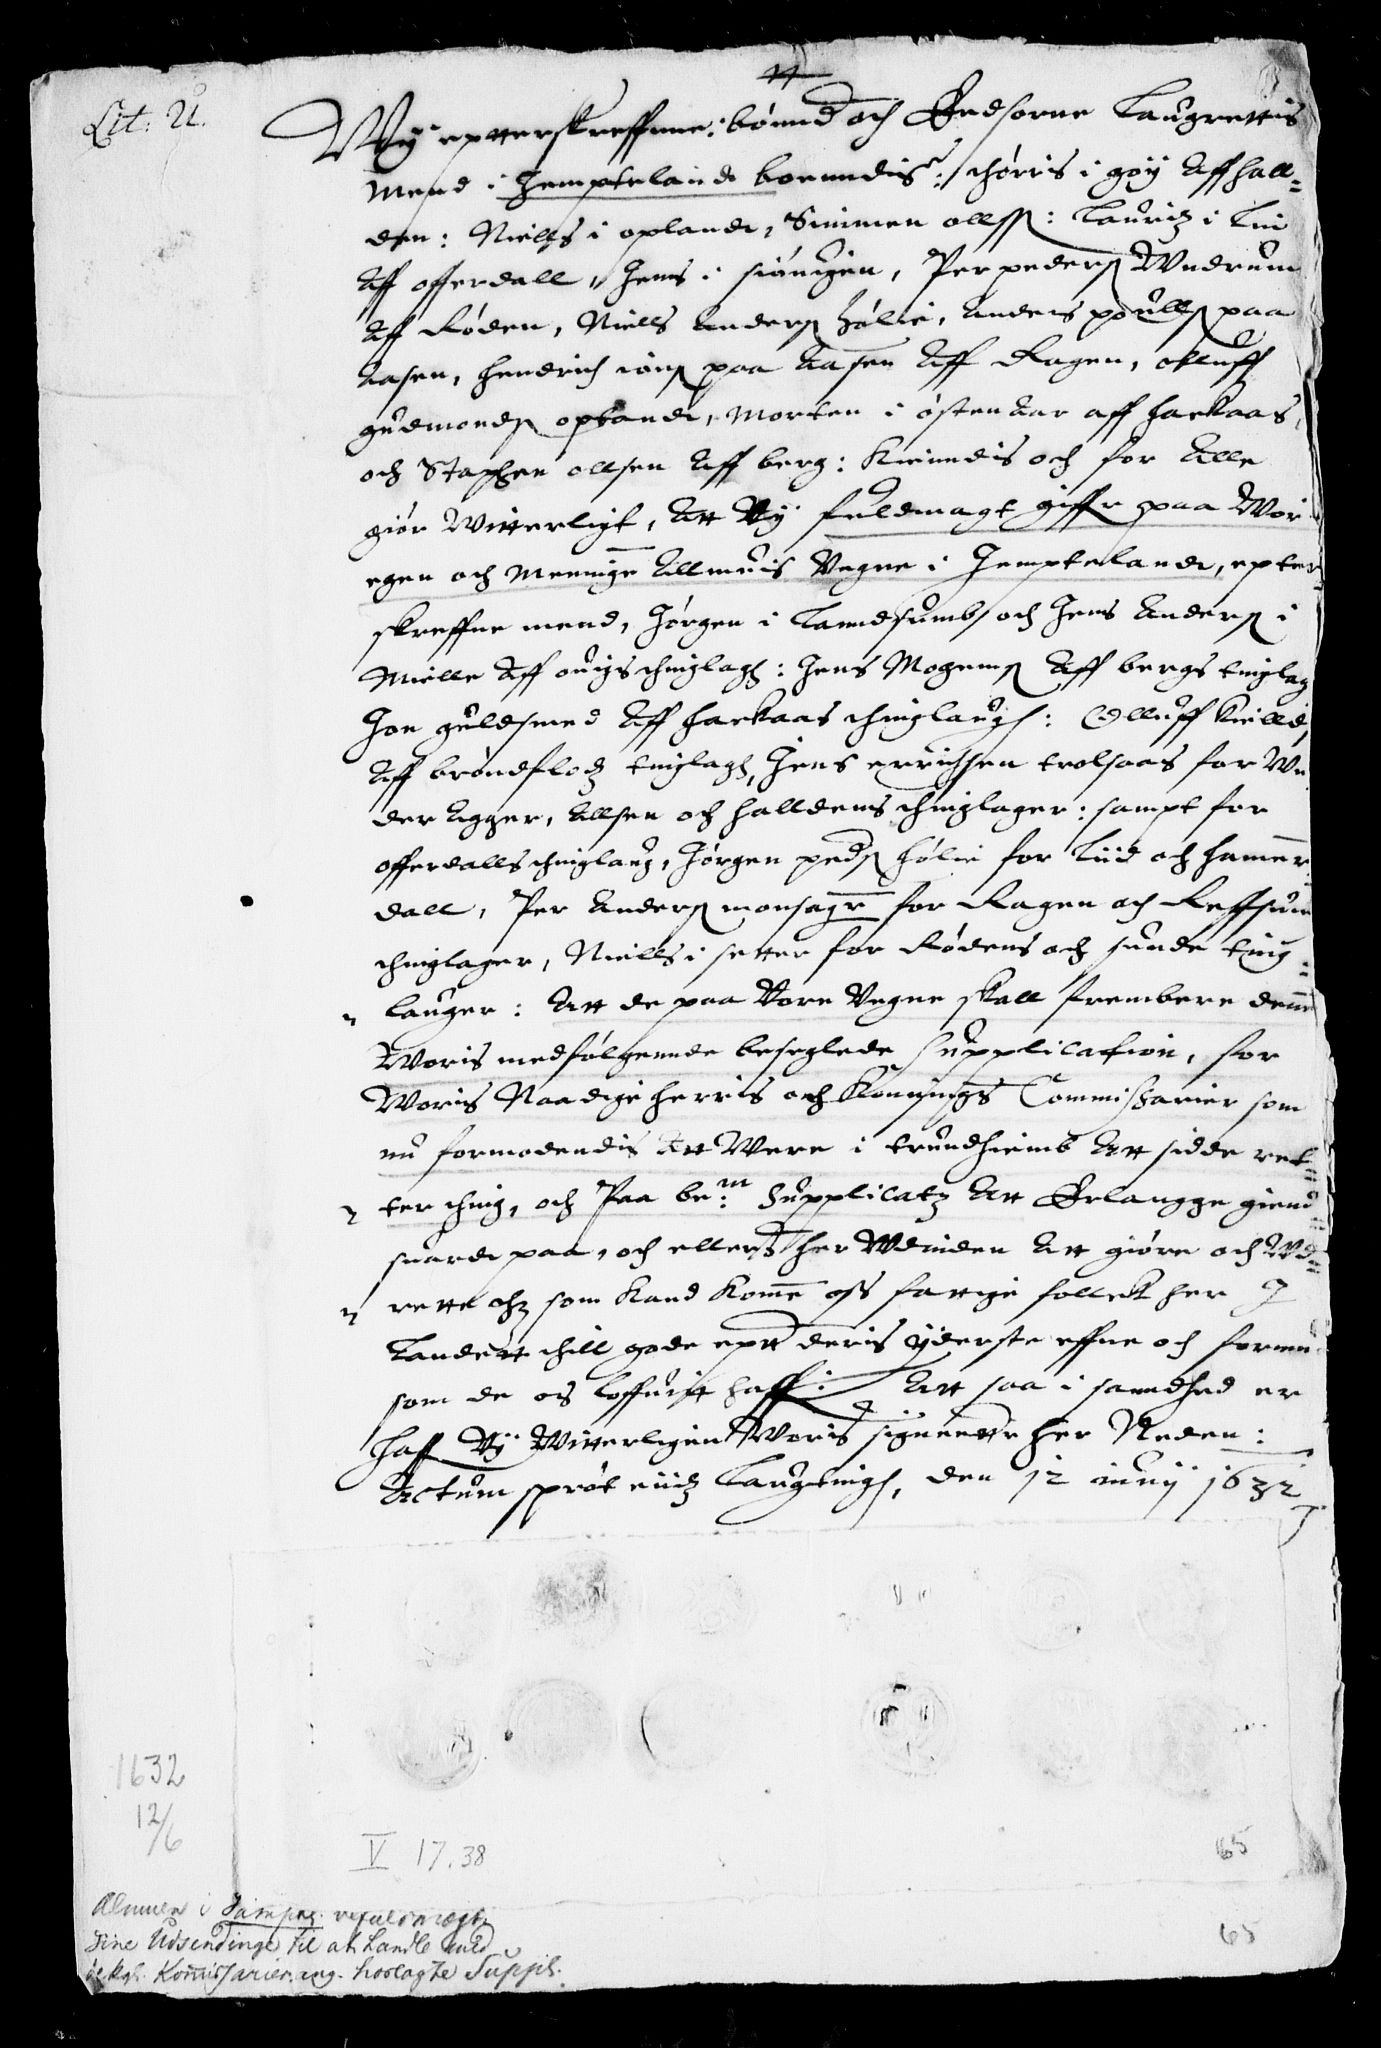 Lit: U.
Wy epterskreffnne: bönnd och Eedsorne Laugrettis
Mend i Jempteland boenndis: thörris i göy Aff hall-
den: Niells i opland, Simmen ollss: Lauritz i Lin
Aff offerdall, Jens i siöuigen, Per peders Wndrum
Aff Röden, Niells Anders hölie, Anders poulls paa
Aasen, hendrich ions paa Aasen Aff Ragen, olluff
gudmonds opland, Morten i östen Aar aff hackaas,
och Staphen ollsen Aff berg: Kiendis och for Alle
giör Witterligt, Att Wy fuldmagt giffr paa Wor
egen och Meninge Allmuis Vegne i Jempteland, epter
skreffne mend, Jörgen i Landsumb och Jens Anders i
Mielle Aff ouigs thinglagh: Jens Mogens Aff bergs tinglag
Jon guldsmed Aff hackaas thinglaugh: Olluff Kield
Aff bröndflod tinglagh, Jens errichsen trolsaas for Wn
der Agger, Allsen och halldens thinglager: sampt for
offerdalls thinglaug, Jörgen peds hölie for Liid och hamer
dall, Per Anders monsager for Ragen och Reffsun
thinglager, Niells i setter for Rödens och sunde ting-
lauger: Att de paa Vore Vegne skall frembere denne
Woris medfölgennde beseglede Supplication, for
Woris Naadige herris och Konnings Commissarier som
nu formodendis Att Were i trundhiemb Att sidde ret-
ter thing, och Paa bem: Supplicatz Att Erlangge giend
suard paa, och ellers her Wdinden Att giöre och Wd-
rette ohz som Kand Kome oss fattige follck her J
Landett thill gode eptt deris yderste effne och formu
som de os loffuitt haff: Att saa i sanndhed er
haff Wy Witterligen Woris signette her Neden:
Actum spröt eiidz Laugtingh, den 12 iunij 1632
1632
12/6
V 17.38
65
65
Almuen i Jämpt. befuldmægt.
sine Udsendinge til at handle med
de kgl. Kommissarier ang. hoslagte Suppl.